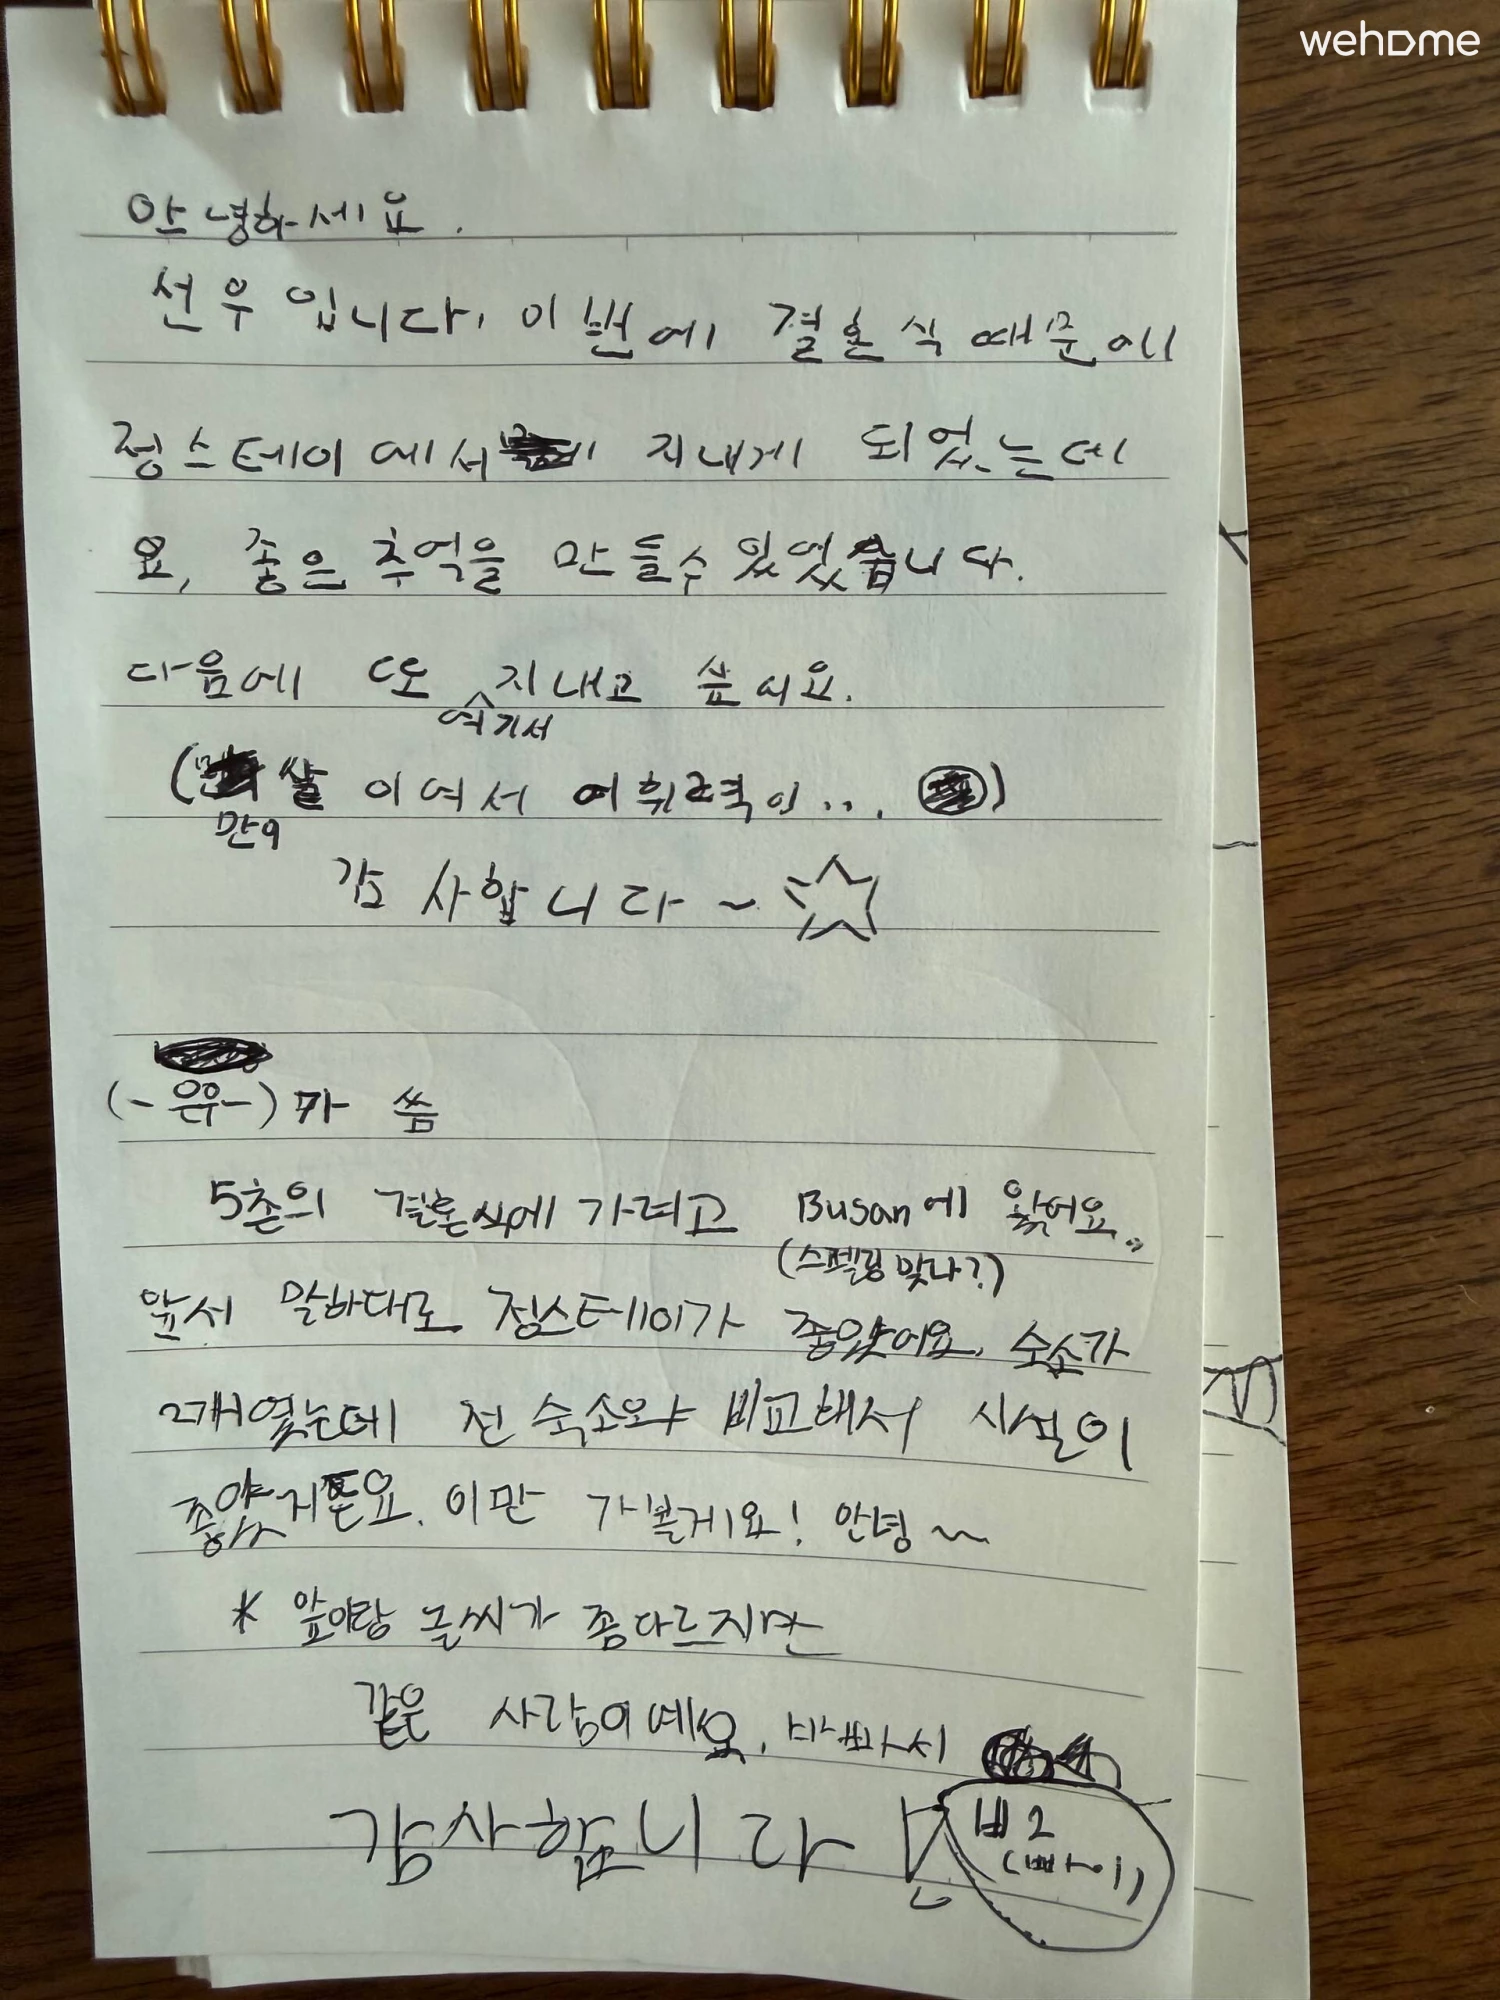 wehome
안녕하세요.
선우입니다. 이번에 결혼식 때문에
정스테이에서 지내게 되었는데
요, 좋은 추억을 만들수 있었습니다.
다음에 또 지내고 싶어요.
여기서
( 살 이여서 어휘력이... )
만9
감사합니다~☆
(-은우-)가 씀
5촌의 결혼식에 가려고 Busan에 왔어요..
(스펠링 맞나?)
앞서 말하대로 정스테이가 좋았어요. 숙소가
2개였는데 전 숙소와 비교해서 시설이
좋았거든요. 이만 가볼게요! 안녕~
* 앞이랑 글씨가 좀 다르지만
같은 사람이예요. 바빠서
감사합니다
ㅃ2
(빠이)